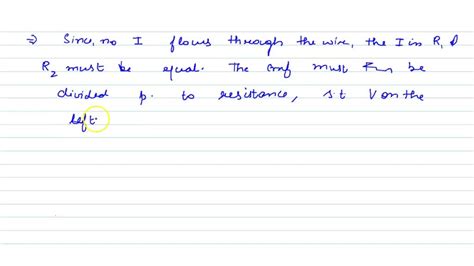 ⇒ Since, no I flows through the wire, the I in R₁ &
R₂ must be equal. The emf must be
divided p. to resistance, s.t V on the
left.